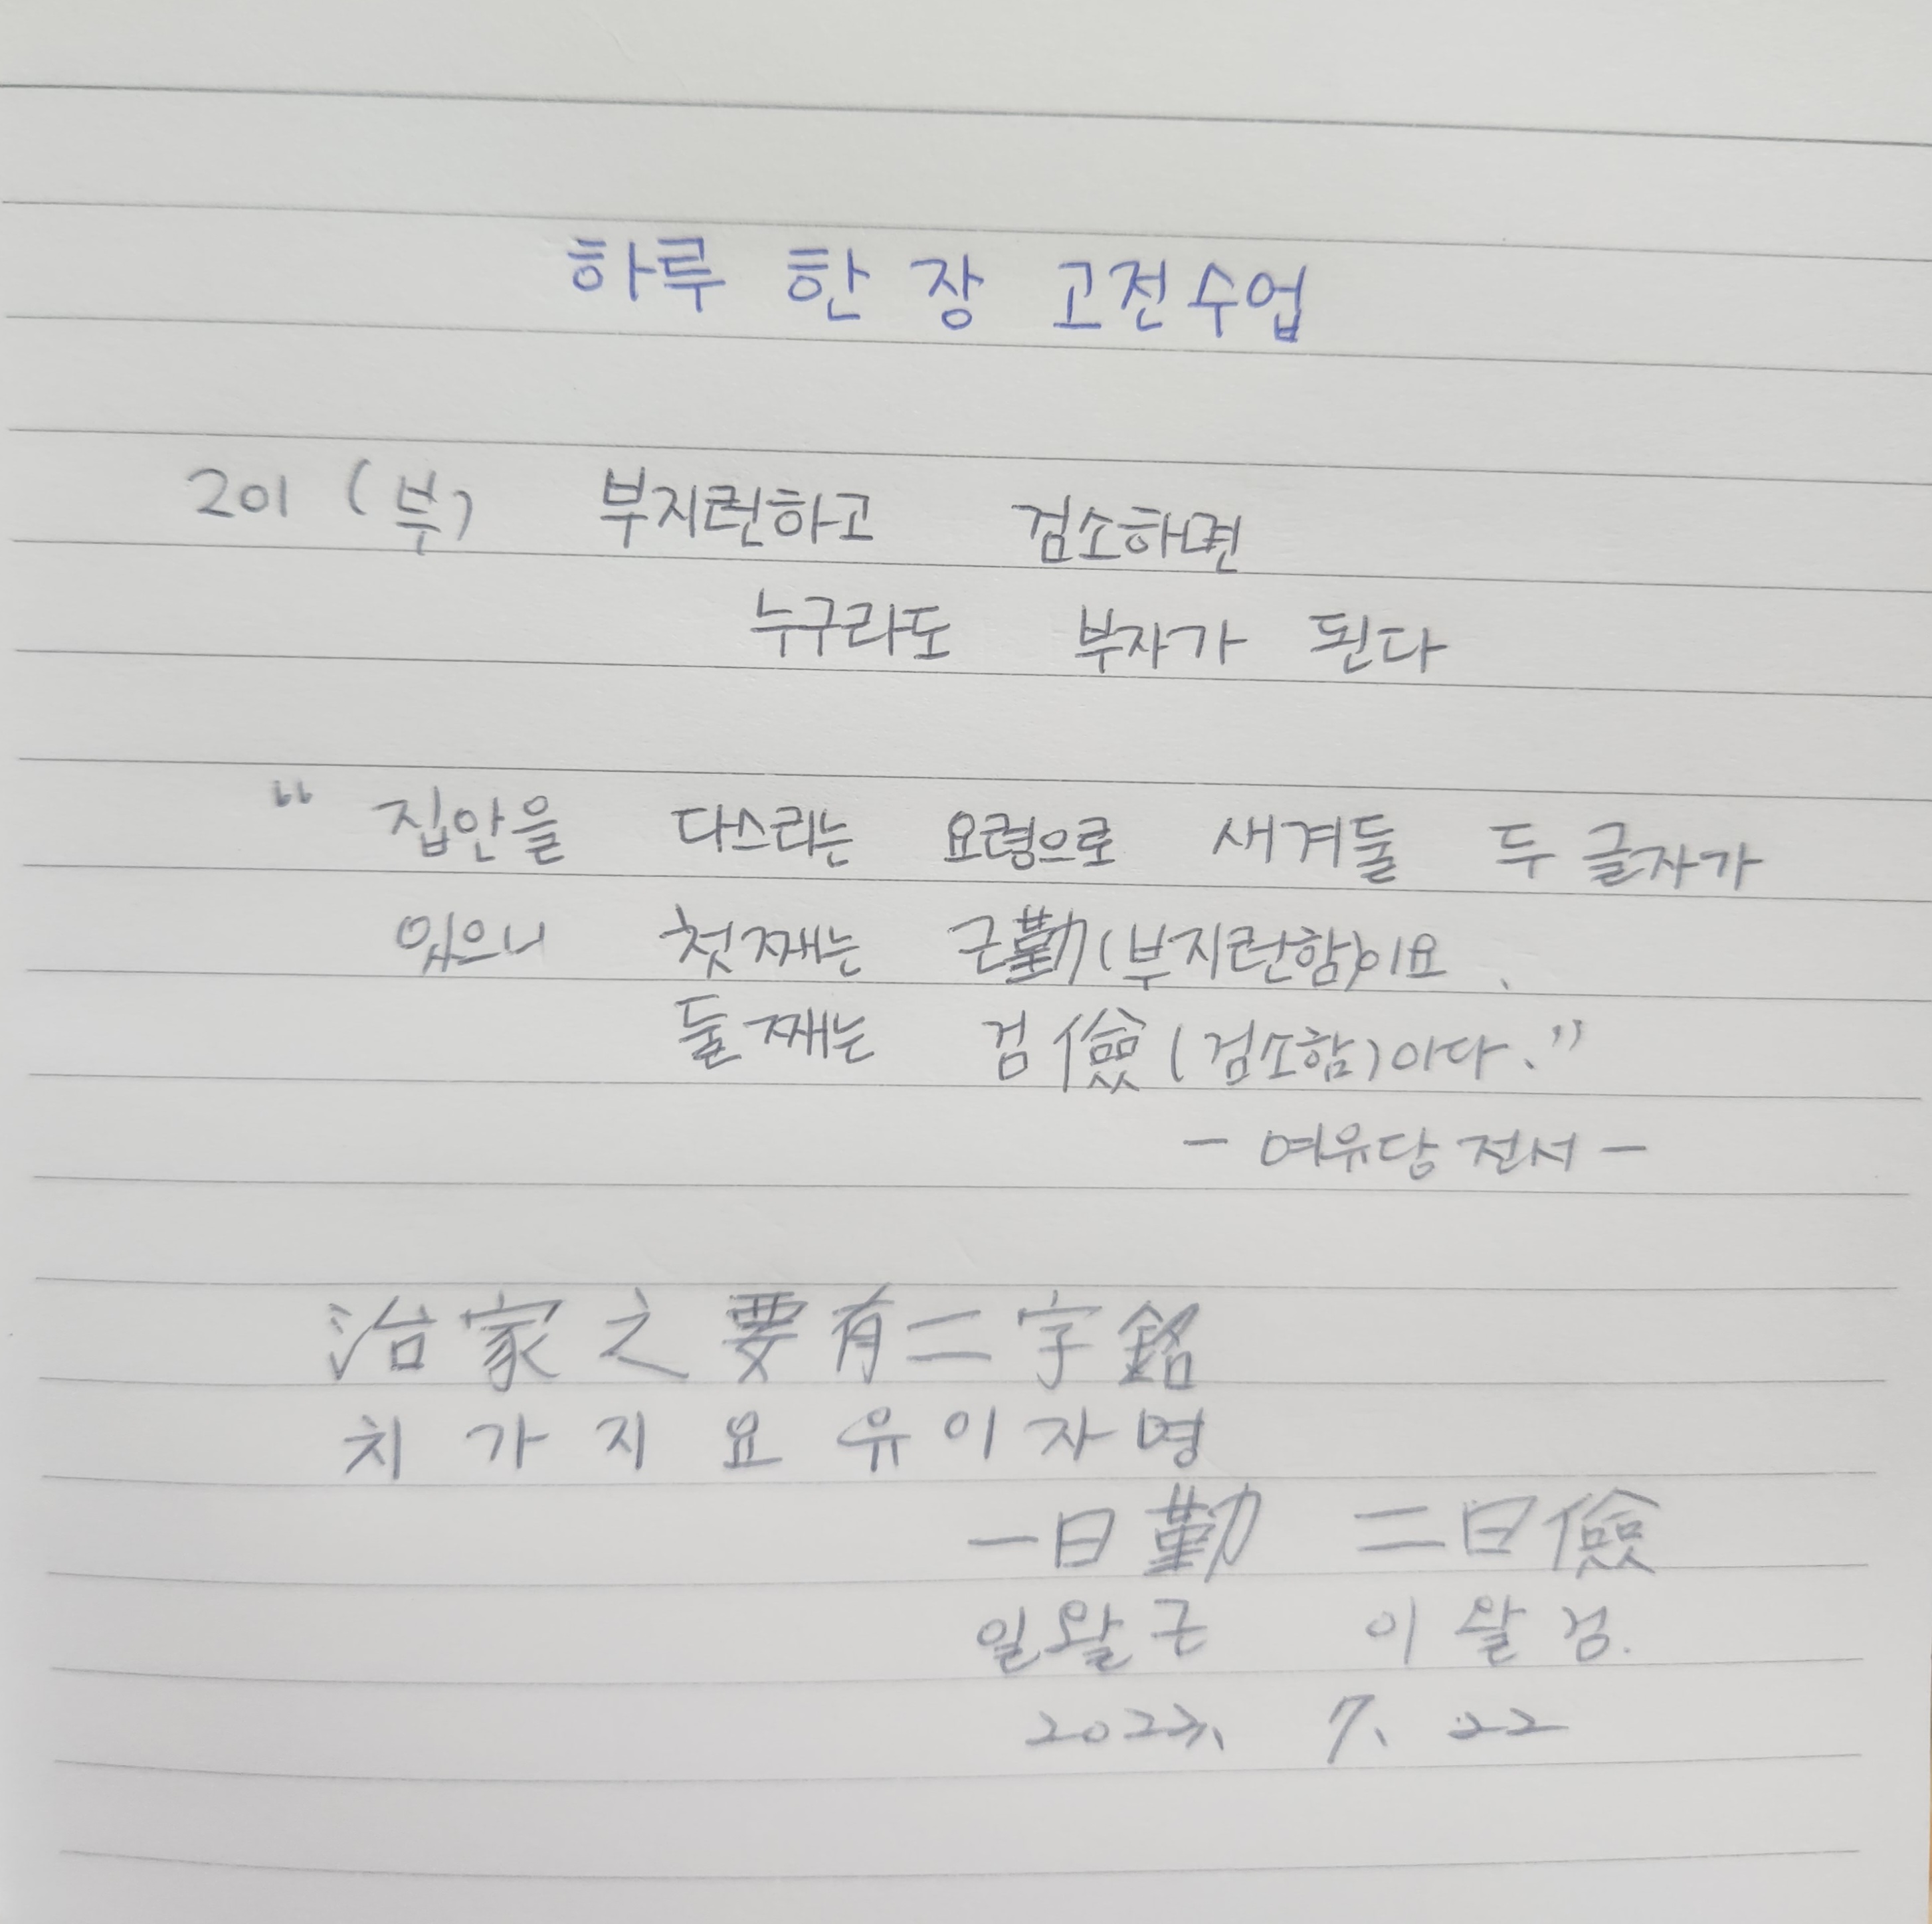 하루 한 장 고전수업
201 (부) 부지런하고 검소하면
누구라도 부자가 된다
“집안을 다스리는 요령으로 새겨둘 두 글자가
있으니 첫째는 근勤(부지런함)이요.
둘째는 검儉(검소함)이다.”
- 여유당 전서 -
治家之要有二字銘
치가지요유이자명
一曰勤 二曰儉
일왈근 이왈검.
7. 22